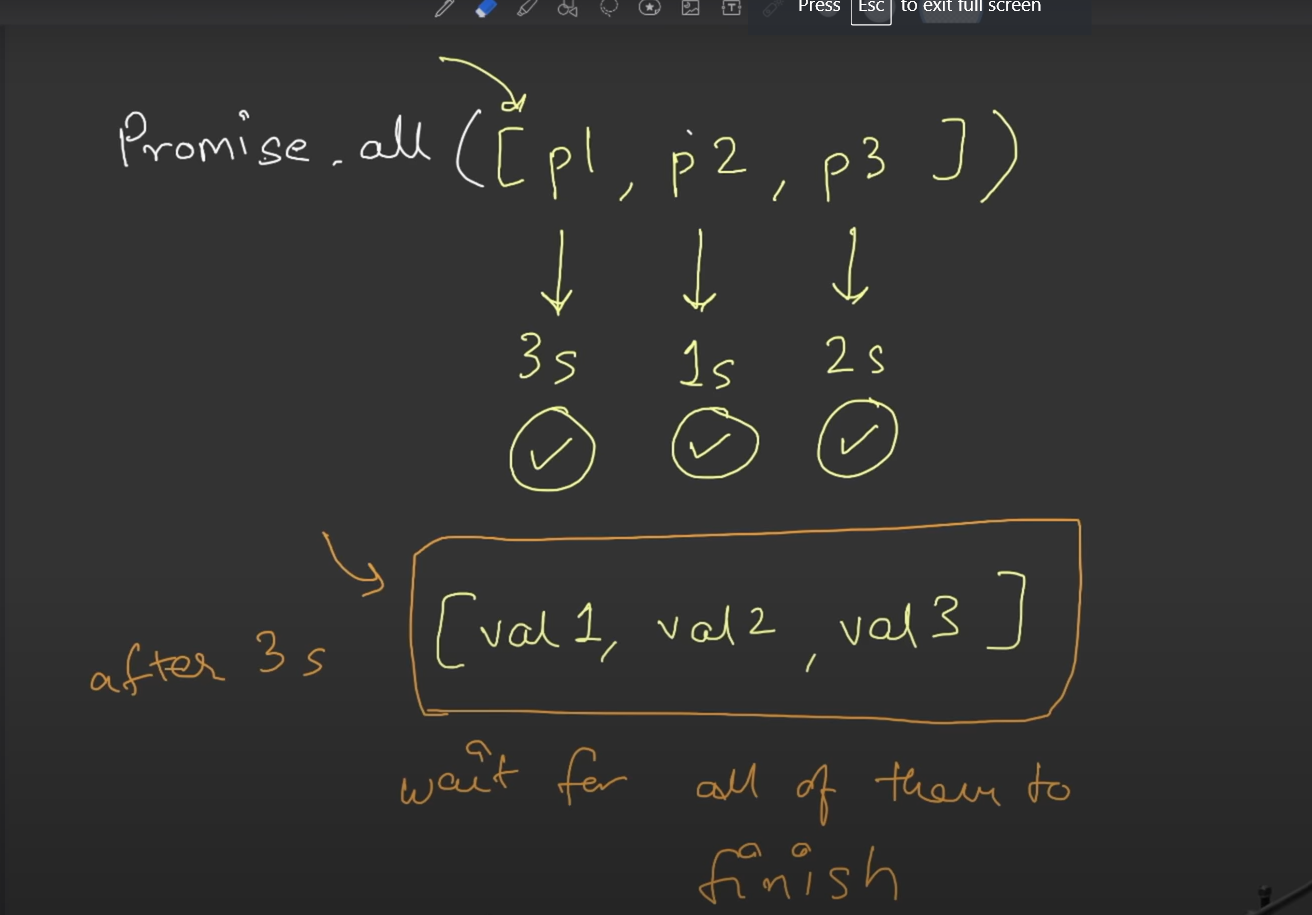 Press Esc to exit full screen
Promise.all([p1, p2, p3])
3s 1s 2s
[val1, val2, val3]
after 3s
wait for all of them to
finish